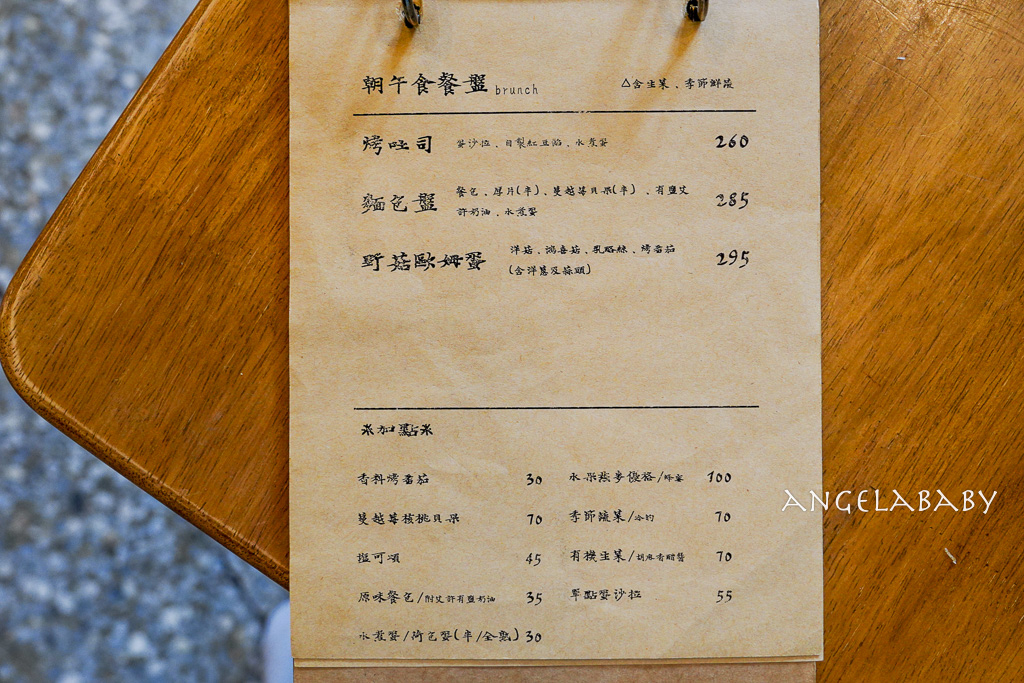 朝午食餐盤 brunch △含生菜、季節鮮蔬
烤吐司 蛋沙拉、自製紅豆餡、水煮蛋 260
麵包盤 餐包、厚片(半)、蔓越莓貝果(半)、有鹽艾
許奶油、水煮蛋 285
野菇歐姆蛋 洋菇、鴻喜菇、乳酪絲、烤番茄
(含洋蔥及蒜頭) 295
米加點米
香料烤蕃茄 30
蔓越莓核桃貝果 70
可頌 45
原味餐包/附艾許有鹽奶油 35
水煮蛋/荷包蛋(半/全熟) 30
水果燕麥優格/蜂蜜 100
季節蔬菜/冷的 70
有機生菜/胡麻香醋醬 70
單點蛋沙拉 55
ANGELABABY